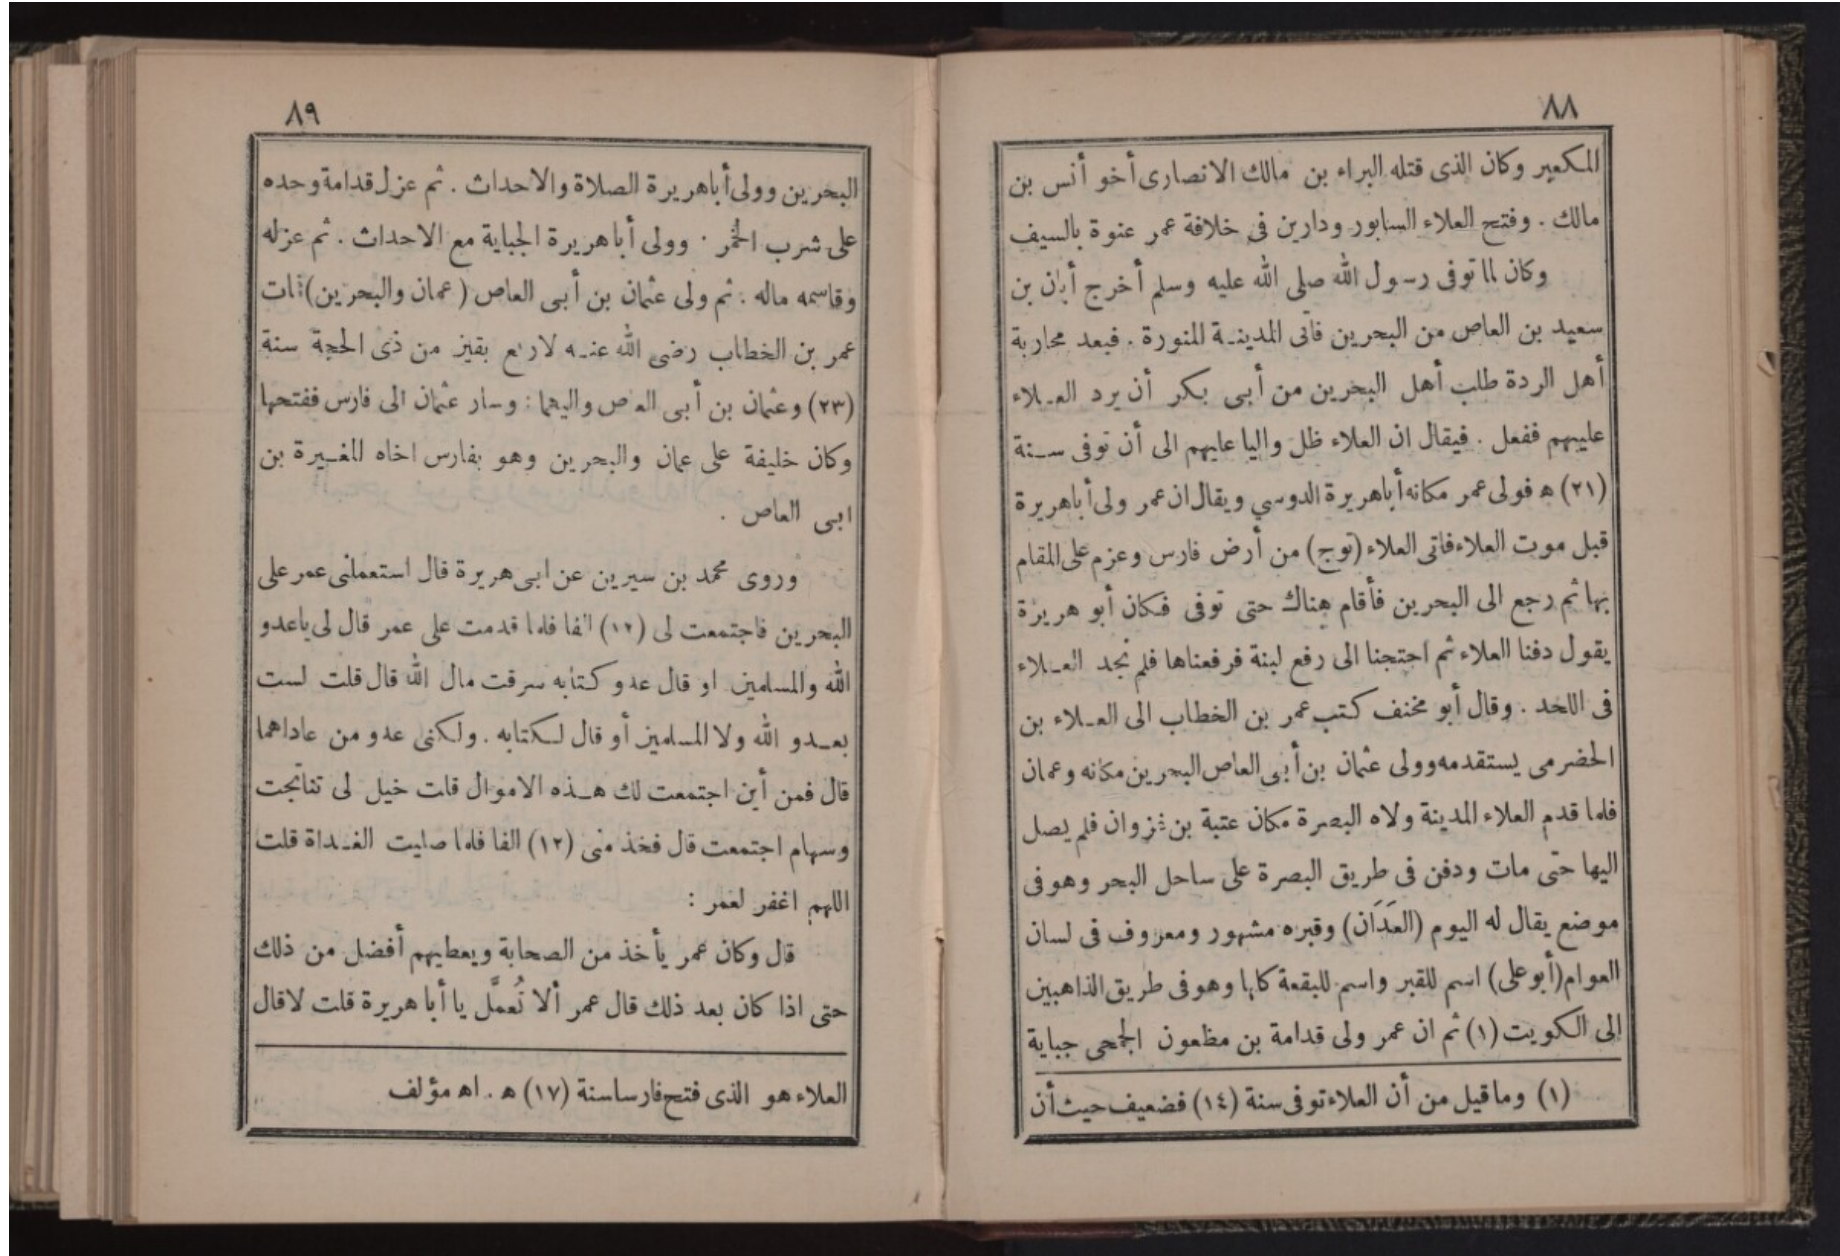 ٨٨
المكعبر وكان الذى قتله البراء بن مالك الانصارى أخو أنس بن
مالك . وفتح العلاء السابور ودارين فى خلافة عمر عنوة بالسيف
وكان لما توفى رسول الله صلى الله عليه وسلم أخرج أبان بن
سعيد بن العاص من البحرين فاتى المدينة المنورة . فبعد محاربة
أهل الردة طلب أهل البحرين من أبى بكر أن يرد العلاء
عليهم ففعل . فيقال ان العلاء ظل واليا عليهم الى أن توفى سنة
(٢١) ه فولى عمر مكانه أباهريرة الدوسي ويقال ان عمر ولى أباهريرة
قبل موت العلاء فاتى العلاء (توج) من أرض فارس وعزم على المقام
بها ثم رجع الى البحرين فأقام هناك حتى توفى فكان أبو هريرة
يقول دفنا العلاء ثم احتجنا الى رفع لبنة فرفعناها فلم نجد العلاء
فى اللحد . وقال أبو مخنف كتب عمر بن الخطاب الى العلاء بن
الحضرمى يستقدمه وولى عثمان بن أبى العاص البحرين مكانه وعمان
فلما قدم العلاء المدينة ولاه البصرة مكان عتبة بن غزوان فلم يصل
اليها حتى مات ودفن فى طريق البصرة على ساحل البحر وهو فى
موضع يقال له اليوم (العَدَان) وقبره مشهور ومعروف فى لسان
العوام (أبو على) اسم للقبر واسم للبقعة كلها وهو فى طريق الذاهبين
إلى الكويت (١) ثم ان عمر ولى قدامة بن مظعون الجمحى جباية
(١) وما قيل من أن العلاء توفى سنة (١٤) فضعيف حيث أن
٨٩
البحرين وولى أباهريرة الصلاة والاحداث . ثم عزل قدامة وحده
على شرب الخمر . وولى أباهريرة الجباية مع الاحداث . ثم عزله
وقاسمه ماله : ثم ولى عثمان بن أبى العاص (عمان والبحرين) فمات
عمر بن الخطاب رضى الله عنه لاربع بقين من ذى الحجة سنة
(٢٣) وعثمان بن أبى العاص واليهما : وسار عثمان الى فارس ففتحها
وكان خليفة على عمان والبحرين وهو بفارس اخاه المغيرة بن
ابى العاص .
وروى محمد بن سيرين عن ابى هريرة قال استعملنى عمر على
البحرين فاجتمعت لى (١٢) الفا فلما قدمت على عمر قال لى ياعدو
الله والمسلمين او قال عدو كتابه سرقت مال الله قال قلت لست
بعدو الله ولا المسلمين أو قال لكتابه . ولكنى عدو من عاداهما
قال فمن أين اجتمعت لك هذه الاموال قلت خيل لى تناتجت
وسهام اجتمعت قال فخذ منى (١٢) الفا فلما صليت الغداة قلت
اللهم اغفر لعمر :
قال وكان عمر يأخذ من الصحابة ويعطيهم أفضل من ذلك
حتى اذا كان بعد ذلك قال عمر ألا تُعمَّل يا أبا هريرة قلت لا قال
العلاء هو الذى فتح فارسا سنة (١٧) ه . اه مؤلف